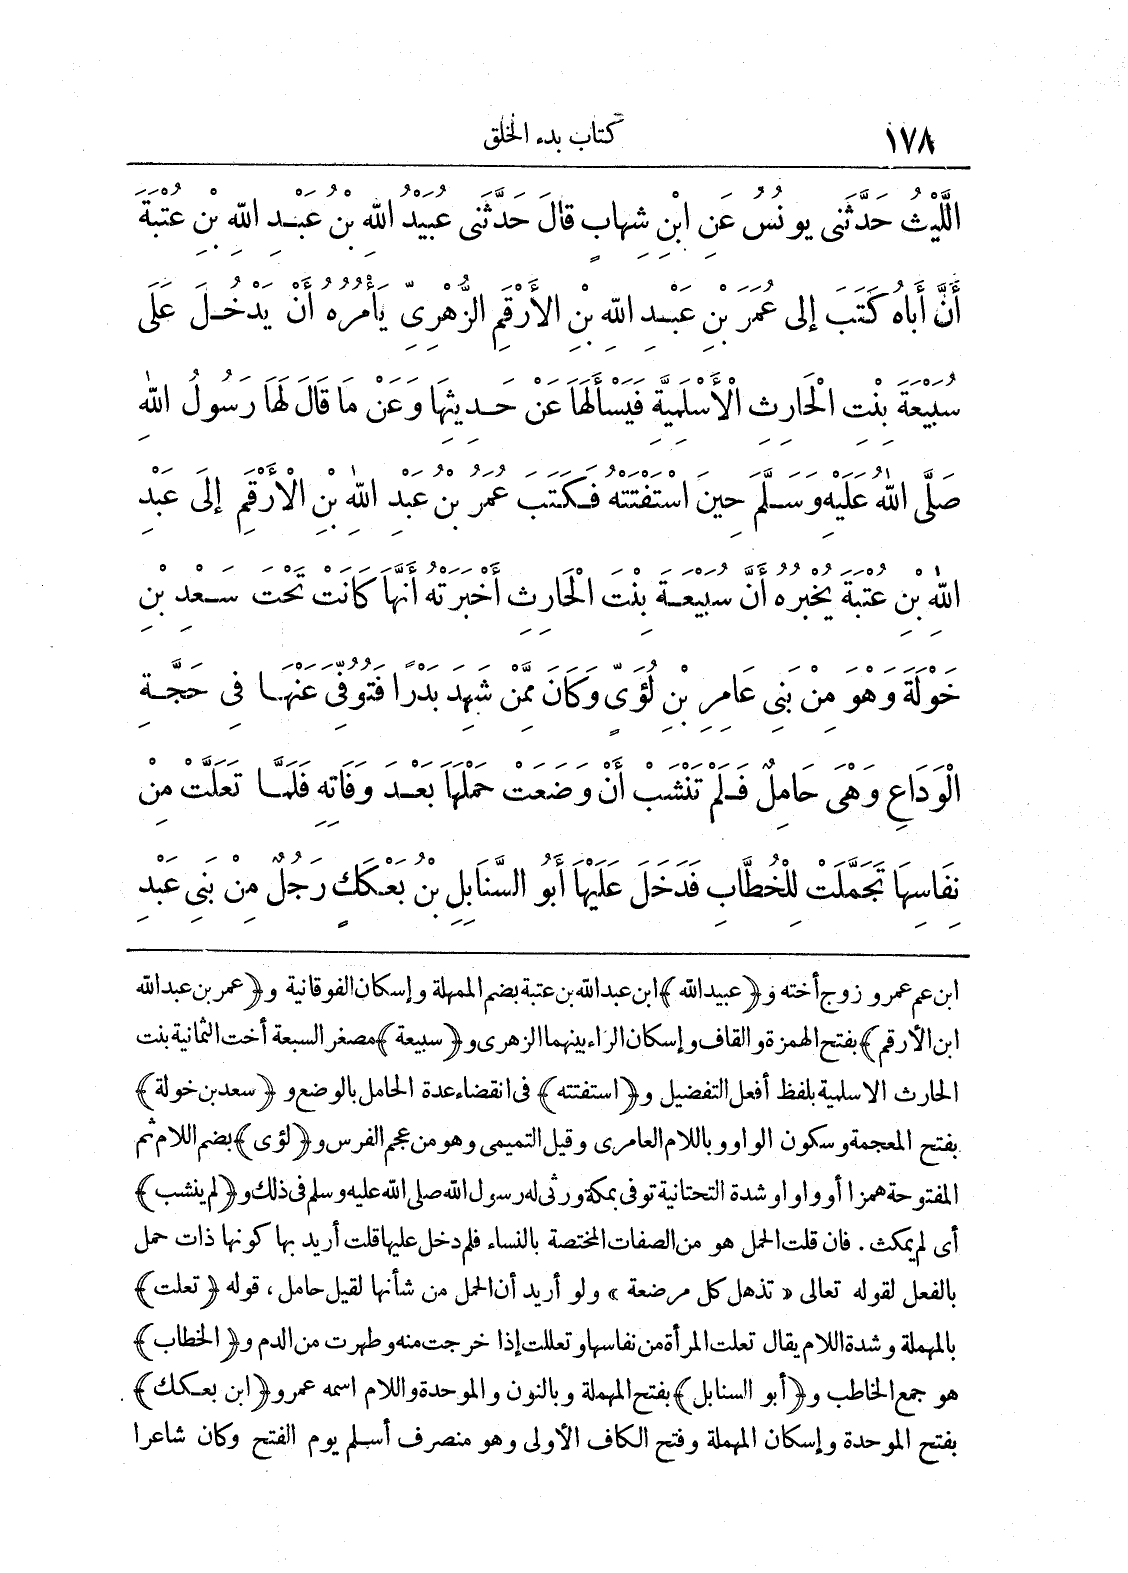 ١٧٨
كتاب بدء الخلق
اللَّيْثُ حَدَّثَنِى يُونُسُ عَنِ ابْنِ شِهَابٍ قَالَ حَدَّثَنِى عُبَيْدُ اللّٰهِ بْنُ عَبْدِ اللّٰهِ بْنِ عُتْبَةَ
أَنَّ أَبَاهُ كَتَبَ إِلَى عُمَرَ بْنِ عَبْدِ اللّٰهِ بْنِ الأَرْقَمِ الزُّهْرِىِّ يَأْمُرُهُ أَنْ يَدْخُلَ عَلَى
سُبَيْعَةَ بِنْتِ الْحَارِثِ الْأَسْلَمِيَّةِ فَيَسْأَلَهَا عَنْ حَدِيثِهَا وَعَنْ مَا قَالَ لَهَا رَسُولُ اللّٰهِ
صَلَّى اللّٰهُ عَلَيْهِ وَسَلَّمَ حِينَ اسْتَفْتَتْهُ فَكَتَبَ عُمَرُ بْنُ عَبْدِ اللّٰهِ بْنِ الْأَرْقَمِ إِلَى عَبْدِ
اللّٰهِ بْنِ عُتْبَةَ يُخْبِرُهُ أَنَّ سُبَيْعَةَ بِنْتَ الْحَارِثِ أَخْبَرَتْهُ أَنَّهَا كَانَتْ تَحْتَ سَعْدِ بْنِ
خَوْلَةَ وَهْوَ مِنْ بَنِى عَامِرِ بْنِ لُؤَىٍّ وَكَانَ مِمَّنْ شَهِدَ بَدْرًا فَتُوُفِّىَ عَنْهَا فِى حَجَّةِ
الْوَدَاعِ وَهْىَ حَامِلٌ فَلَمْ تَنْشَبْ أَنْ وَضَعَتْ حَمْلَهَا بَعْدَ وَفَاتِهِ فَلَمَّا تَعَلَّتْ مِنْ
نِفَاسِهَا تَجَمَّلَتْ لِلْخُطَّابِ فَدَخَلَ عَلَيْهَا أَبُو السَّنَابِلِ بْنُ بَعْكَكٍ رَجُلٌ مِنْ بَنِى عَبْدِ
ابن عم عمرو زوج أخته و﴿عبيد الله﴾ ابن عبد الله بن عتبة بضم المهملة وإسكان الفوقانية و﴿عمر بن عبد الله
ابن الأرقم﴾ بفتح الهمزة والقاف وإسكان الراء بينهما الزهرى و﴿سبيعة﴾ مصغر السبعة أخت الثمانية بنت
الحارث الاسلمية بلفظ أفعل التفضيل و﴿استفتته﴾ فى انقضاء عدة الحامل بالوضع و ﴿سعد بن خولة﴾
بفتح المعجمة وسكون الواو وباللام العامرى وقيل التميمى وهو من عجم الفرس و﴿لؤى﴾ بضم اللام ثم
المفتوحة همزا أو واوا وشدة التحتانية توفى بمكة ورثى له رسول الله صلى الله عليه وسلم فى ذلك و﴿لم ينشب﴾
أى لم يمكث. فان قلت الحمل هو من الصفات المختصة بالنساء فلم دخل عليها قلت أريد بها كونها ذات حمل
بالفعل لقوله تعالى «تذهل كل مرضعة» ولو أريد أن الحمل من شأنها لقيل حامل، قوله ﴿تعلت﴾
بالمهملة وشدة اللام يقال تعلت المرأة من نفاسها وتعللت إذا خرجت منه وطهرت من الدم و﴿الخطاب﴾
هو جمع الخاطب و﴿أبو السنابل﴾ بفتح المهملة وبالنون والموحدة واللام اسمه عمرو ﴿ابن بعكك﴾
بفتح الموحدة وإسكان المهملة وفتح الكاف الأولى وهو منصرف أسلم يوم الفتح وكان شاعرا